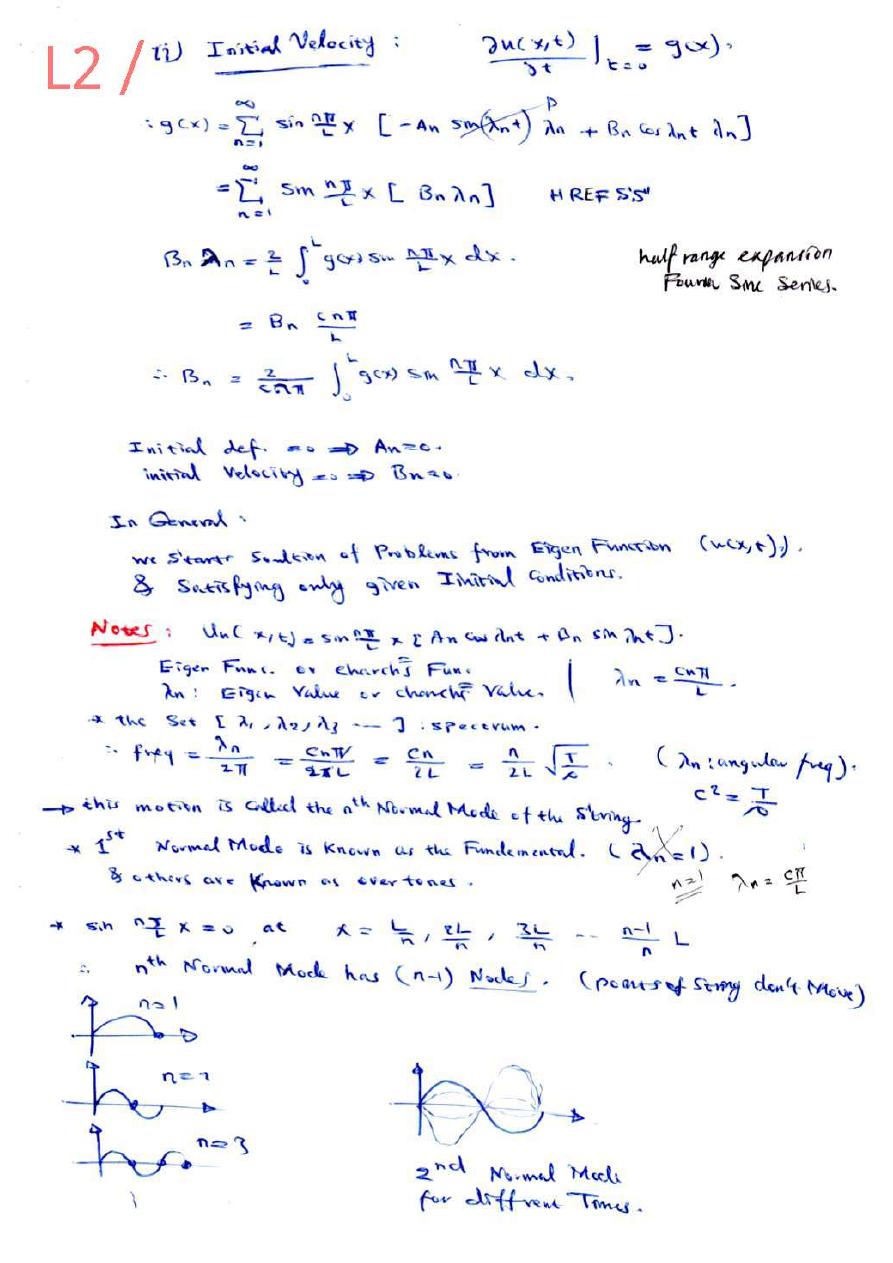 L2 /
(ii) Initial Velocity : ∂u(x,t)/∂t |t=0 = g(x).
∴ g(x) = ∑_{n=1}^{∞} sin nπ/L x [ -An sin(λnt) λn + Bn Cos λnt λn ]
= ∑_{n=1}^{∞} sin nπ/L x [ Bn λn ] HREFSS"
Bn λn = 2/L ∫_0^L g(x) sin nπ/L x dx.
half range expansion
Fourier Sine Series.
= Bn cnπ/L
∴ Bn = 2/cnπ ∫_0^L g(x) sin nπ/L x dx.
Initial def. =0 ⇒ An=0.
initial Velocity =0 ⇒ Bn=0.
In General :
we Starts Soultion of Problems from Eigen Function (u(x,t)).
& Satisfying only given Iinitial Conditions.
Notes : Un( x,t) = sin nπ/L x [ An Cos λnt + Bn sin λnt ].
Eigen Func. or Func. | λn = cnπ/L.
λn : Eigen Value or Value.
* the Set [ λ1, λ2, λ3 ---- ] : spectrum.
∴ freq = λn/2π = Cnπ/2πL = Cn/2L = n/2L √T/ρ. (λn : angular freq).
C² = T/ρ
→ this motion is Called the nth Normal Mode of the String.
* 1st Normal Mode is Known as the Fundemental. (λn=1).
& others are Known as overtones. n=1 λn = cπ/L
* sin nπ/L x = 0, at x = L/n, 2L/n, 3L/n --- n-1/n L
∴ nth Normal Mode has (n-1) Nodes. (points of String don't Move)
n=1
n=2
n=3
2nd Normal Mode
for diffrent Times.